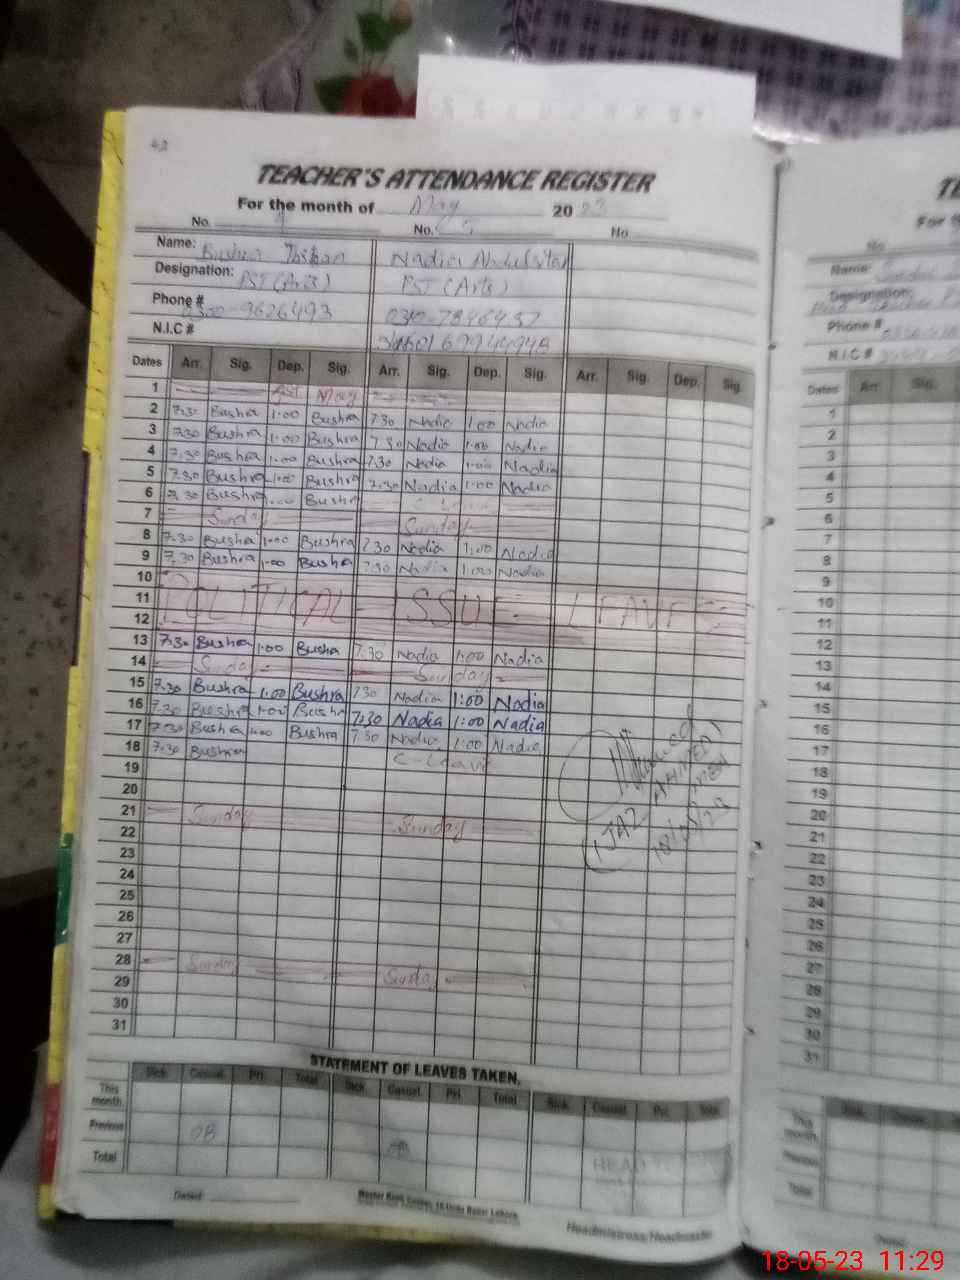 TEACHER'S ATTENDANCE REGISTER
For the month of May 2023
No. 4 No. 5 No.
Name: Bushra Nadia Abdulsttar
Designation: PST (Arts) PST (Arts)
Phone # 0300-9626493
N.I.C #
Dates Arr. Sig. Dep. Sig. Arr. Sig. Dep. Sig. Arr. Sig. Dep. Sig.
1 1st May
2 7.30 Bushra 1.00 Bushra 7.30 Nadia 1.00 Nadia
3 7.30 Bushra 1.00 Bushra 7.30 Nadia 1.00 Nadia
4 7.30 Bushra 1.00 Bushra 7.30 Nadia 1.00 Nadia
5 7.30 Bushra 1.00 Bushra 7.30 Nadia 1.00 Nadia
6 7.30 Bushra 1.00 Bushra C-Leave
7 Sunday Sunday
8 7.30 Bushra 1.00 Bushra 7.30 Nadia 1.00 Nadia
9 7.30 Bushra 1.00 Bushra 7.30 Nadia 1.00 Nadia
10
11 POLITICAL ISSUE LEAVE
12
13 7.30 Bushra 1.00 Busha 7.30 Nadia 1:00 Nadia
14 Sunday Sunday
15 7.30 Bushra 1.00 Bushra 7.30 Nadia 1:00 Nadia
16 7.30 Bushra 1.00 Bushra 7.30 Nadia 1:00 Nadia
17 7.30 Bushra 1.00 Bushra 7.30 Nadia 1:00 Nadia
18 7.30 Bushra C-Leave
IJAZ AHMED
MEA
18/05/23
19
20
21 Sunday Sunday
22
23
24
25
26
27
28 Sunday Sunday
29
30
31
STATEMENT OF LEAVES TAKEN.
Sick Casual Pri. Total Sick. Casual. Pri. Total Sick. Casual. Pri. Total
This month.
Previous 08
Total
HEAD
Dated:
Headmistress/Headmaster
For
No.
Name:
Designation:
Phone #
N.I.C #
Dates Arr. Sig.
1
2
3
4
5
6
7
8
9
10
11
12
13
14
15
16
17
18
19
20
21
22
23
24
25
26
27
28
29
30
31
This month.
Previous
Total
18-05-23 11:29